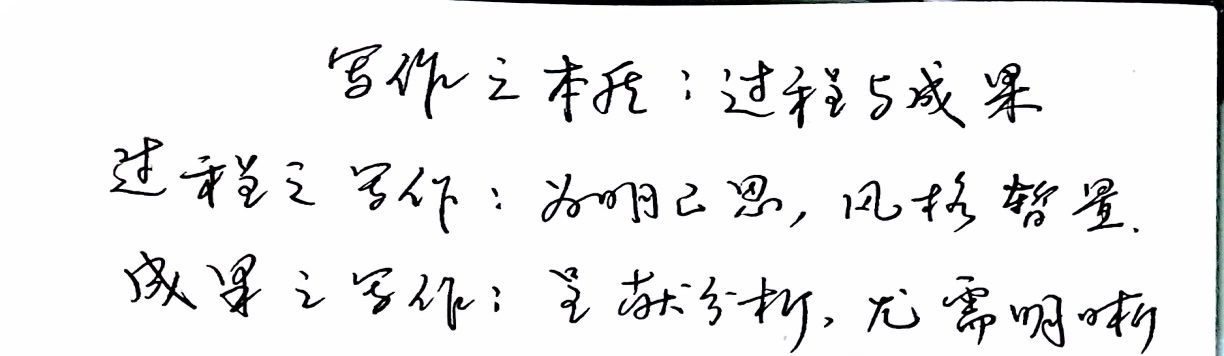 写作之本质：过程与成果
过程之写作：为明己思，风格暂置.
成果之写作：呈献分析，尤需明晰